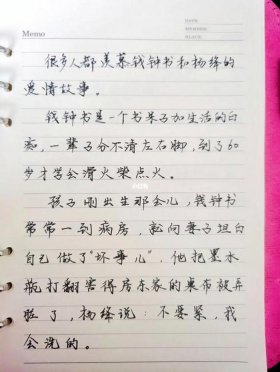 Memo
DATE
很多人都羡慕钱钟书和杨绛的
爱情故事。
钱钟书是一个书呆子加生活的白
痴，一辈子分不清左右脚，到了60
岁才学会滑火柴点火。
孩子刚出生那会儿，钱钟书
常常一到病房，就向妻子坦白
自己做了“坏事儿”，他把墨水
瓶打翻害得房东家的桌布被弄
脏了，杨绛说：不要紧，我
会洗的。